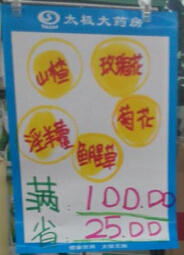 太极大药房
山楂
玫瑰花
淫羊藿
菊花
鱼腥草
满:100.00
省:25.00